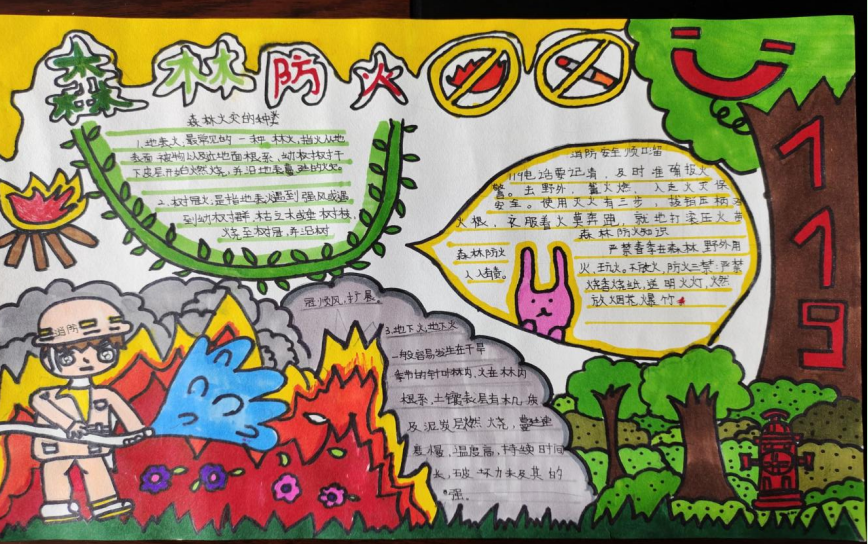 森林防火
森林火灾的种类
1.地表火,最常见的一种林火,指火从地
表面被物以及近地面根系,幼树树干
下皮层开始燃烧,并沿地表蔓延的火。
2.树冠火,是指地表火遇到强风或遇
到幼树群,枯立木或
烧至树冠,并沿树
冠顺风,扩展。
3.地下火,地下火
一般容易发生在干旱
季节的针叶林内,火在林内
根系,土壤表层有机,
及泥炭层燃烧,蔓延速
度慢,温度高,持续时间
长,破坏力极其的
强。
消防安全顺口溜
119电话要记清,及时准确报火
警。去野外,人走火灭保
安全。使用灭火有三步,
火根,衣服着火莫奔跑,就地打滚压火苗
森林防火知识
森林防火
人人有责。
严禁春季在森林,野外用
火、玩火。防火三禁:严禁
烧香烧纸,送明火灯,燃
放烟花,爆竹
消防
119